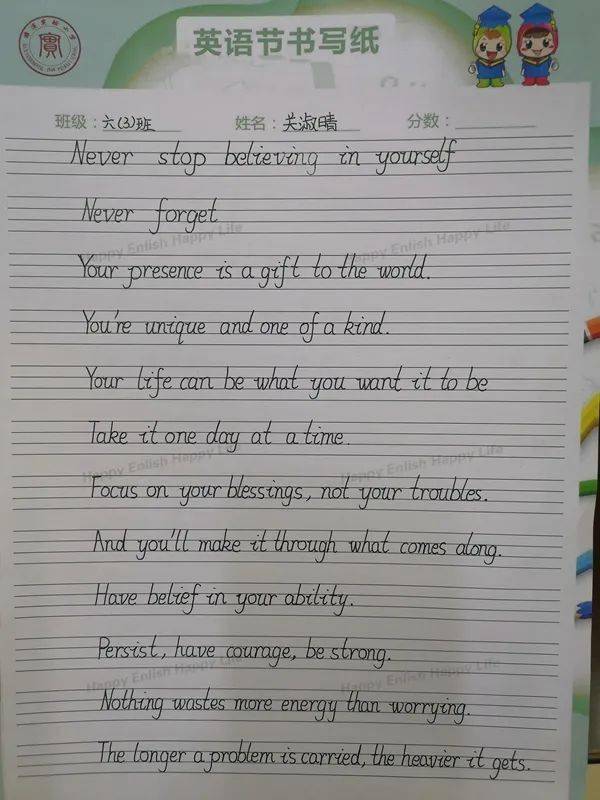 英语节书写纸
班级：六(3)班 姓名：关淑晴 分数：
Never stop believing in yourself
Never forget
Happy Enlish Happy Life
Happy Enlish Happy Life
Your presence is a gift to the world.
You're unique and one of a kind.
Your life can be what you want it to be
Take it one day at a time.
Happy Enlish Happy Life
Happy Enlish Happy Life
Focus on your blessings, not your troubles.
And you'll make it through what comes along.
Have belief in your ability.
Persist, have courage, be strong.
Happy Enlish Happy Life
Happy Enlish Happy Life
Nothing wastes more energy than worrying.
The longer a problem is carried, the heavier it gets.